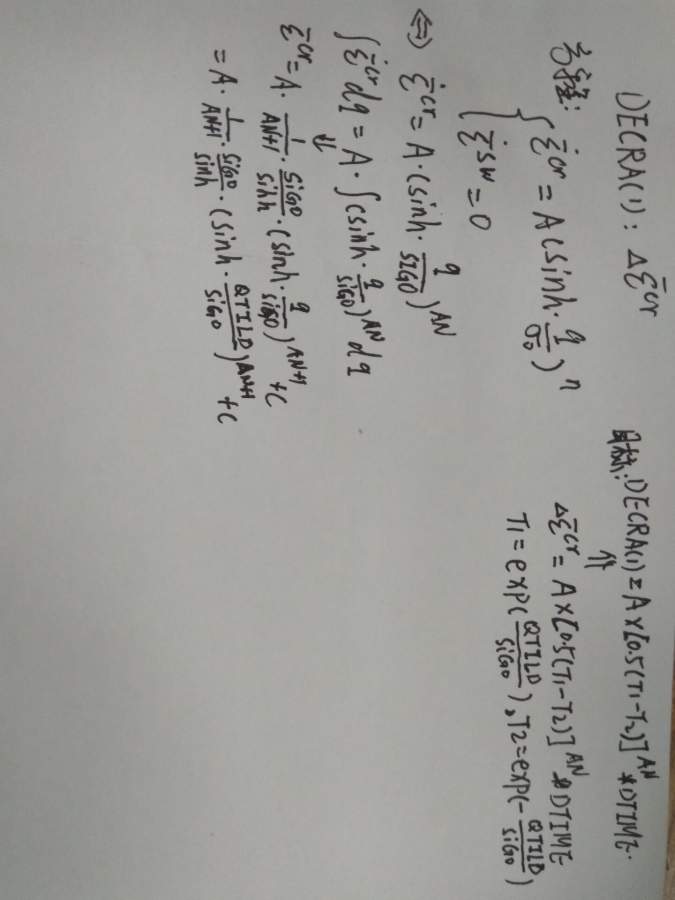 DECRA(1): Δε̄^cr
考虑:
{ ε̄̇^cr = A(sinh·q/σ₀)^n
ε̄̇^sw = 0
⇔ ε̄̇^cr = A·(sinh·q/SIG0)^AN
∫ε̄̇^cr dq = A·∫(sinh·q/SIG0)^AN dq
⇓
ε̄^cr = A·1/AN+1·SIG0/sinh·(sinh·q/SIG0)^AN+1 +C
= A·1/AN+1·SIG0/sinh·(sinh·QTILD/SIG0)^AN+1 +C
目标: DECRA(1) = A*[0.5(T1-T2)]^AN *DTIME.
⇑
Δε̄^cr = A*[0.5(T1-T2)]^AN *DTIME
T1 = exp(QTILD/SIG0), T2 = exp(-QTILD/SIG0)